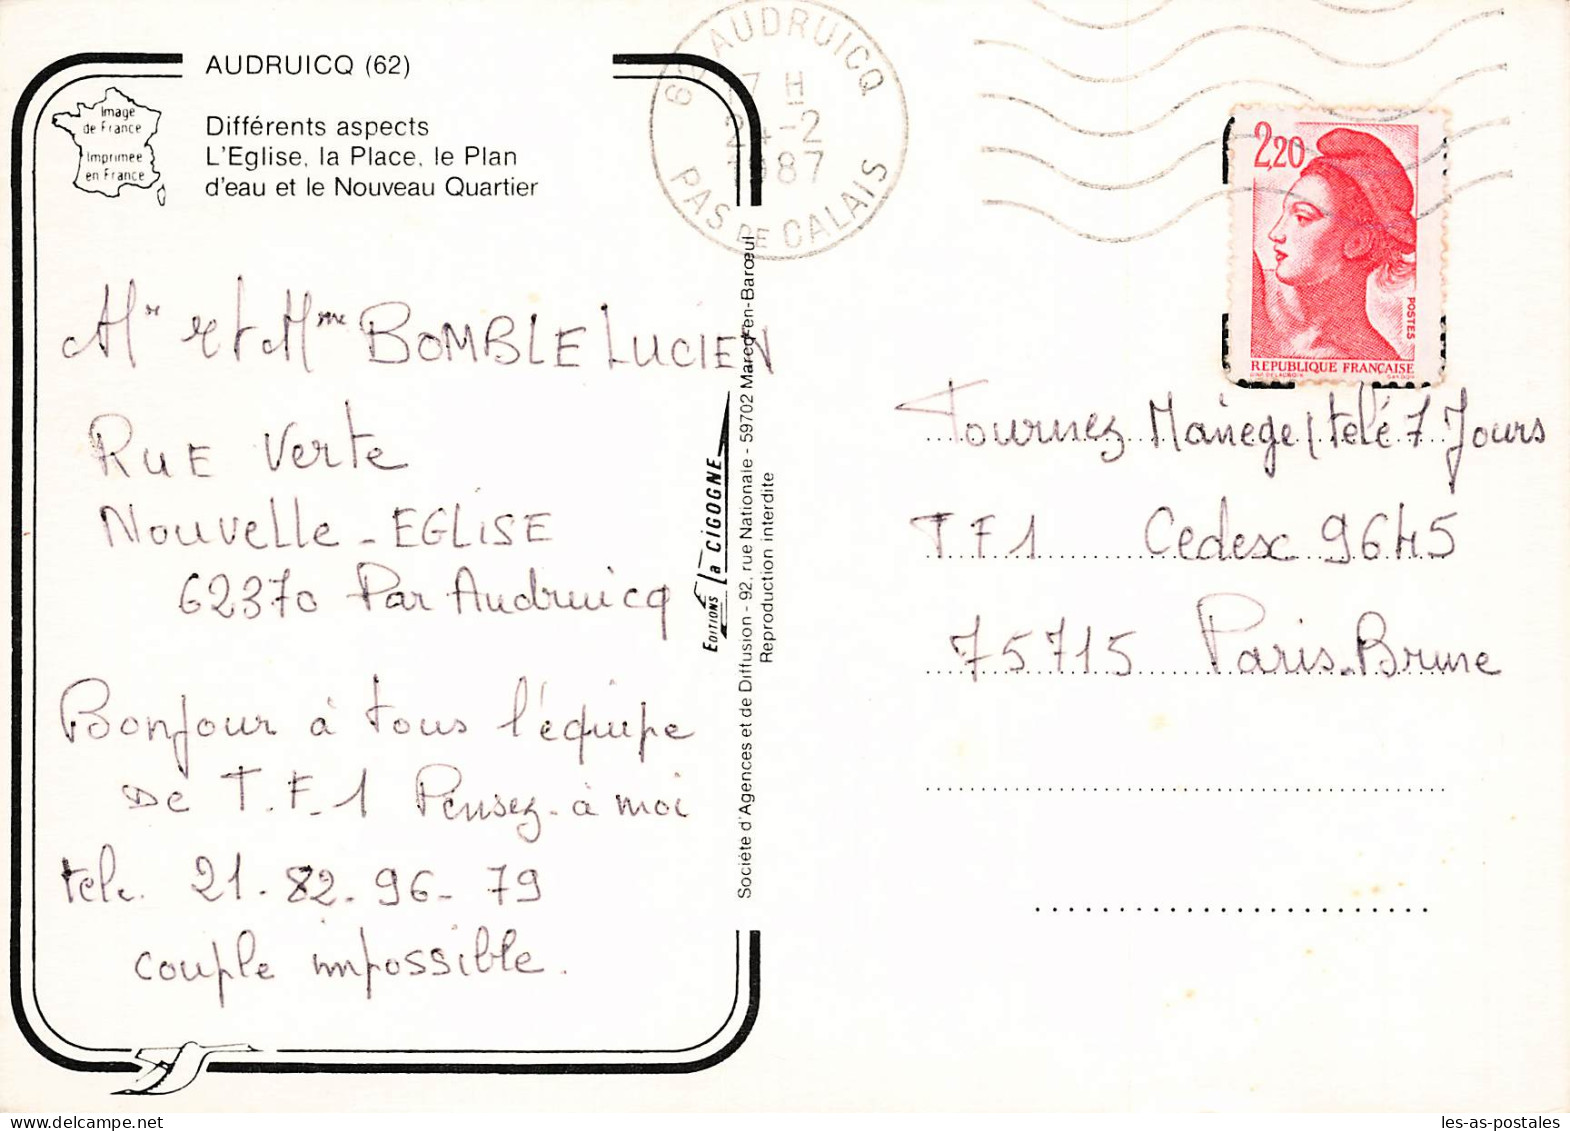 AUDRUICQ (62)
Image
de France
Imprimée
en France
Différents aspects
L'Eglise, la Place, le Plan
d'eau et le Nouveau Quartier
62 AUDRUICQ
17 H
24-2
1987
PAS DE CALAIS
2,20
POSTES
REPUBLIQUE FRANÇAISE
Mr et Mme BOMBLE LUCIEN
RUE Verte
Nouvelle-EGLISE
62370 Par Audruicq
Bonjour à tous l'équipe
De T.F.1 Pensez-à moi
tele. 21-82-96-79
couple impossible.
EDITIONS La CIGOGNE
Société d'Agences et de Diffusion - 92, rue Nationale - 59702 Marcq-en-Barœul
Reproduction interdite
Tournez Manège / télé 7 Jours
TF1 Cedex 9645
75715 Paris-Brune
les-as-postales